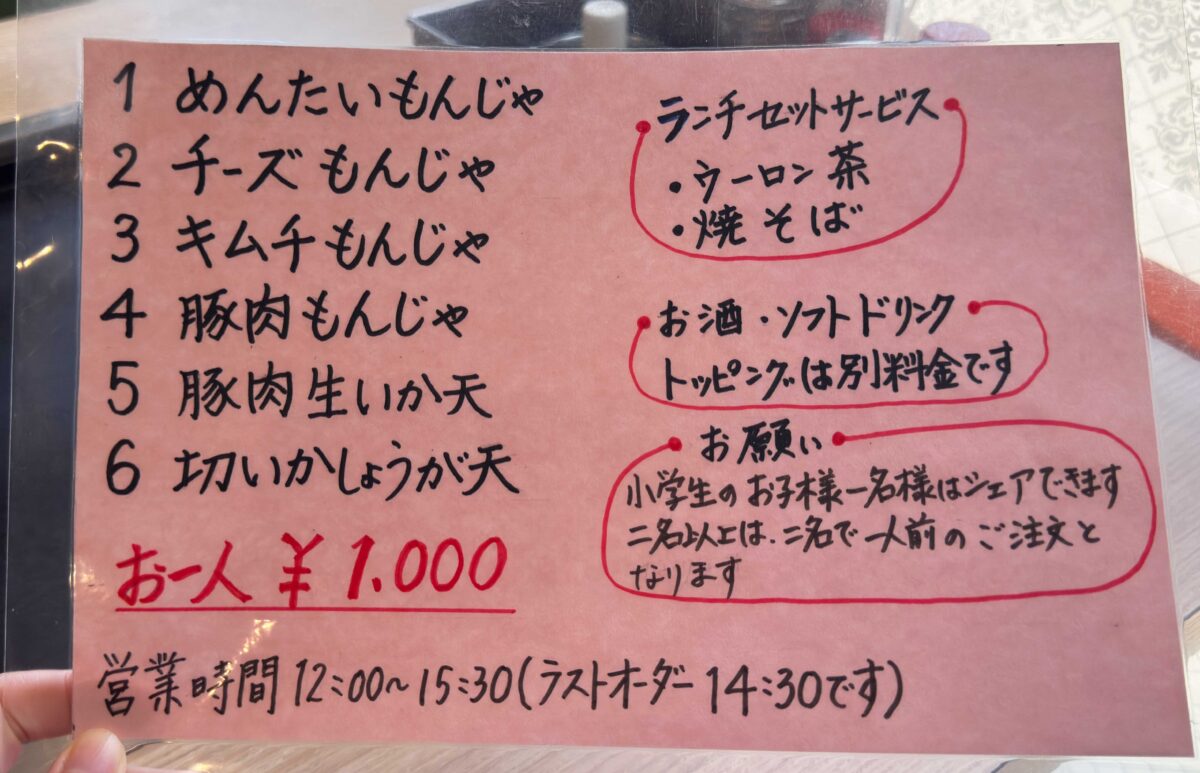 1 めんたいもんじゃ
2 チーズもんじゃ
3 キムチもんじゃ
4 豚肉もんじゃ
5 豚肉生いか天
6 切いかしょうが天
お一人 ¥1.000
ランチセットサービス
・ウーロン茶
・焼そば
お酒・ソフトドリンク
トッピングは別料金です
お願い
小学生のお子様一名様はシェアできます
二名以上は、二名で一人前のご注文と
なります
営業時間 12:00~15:30(ラストオーダー 14:30です)